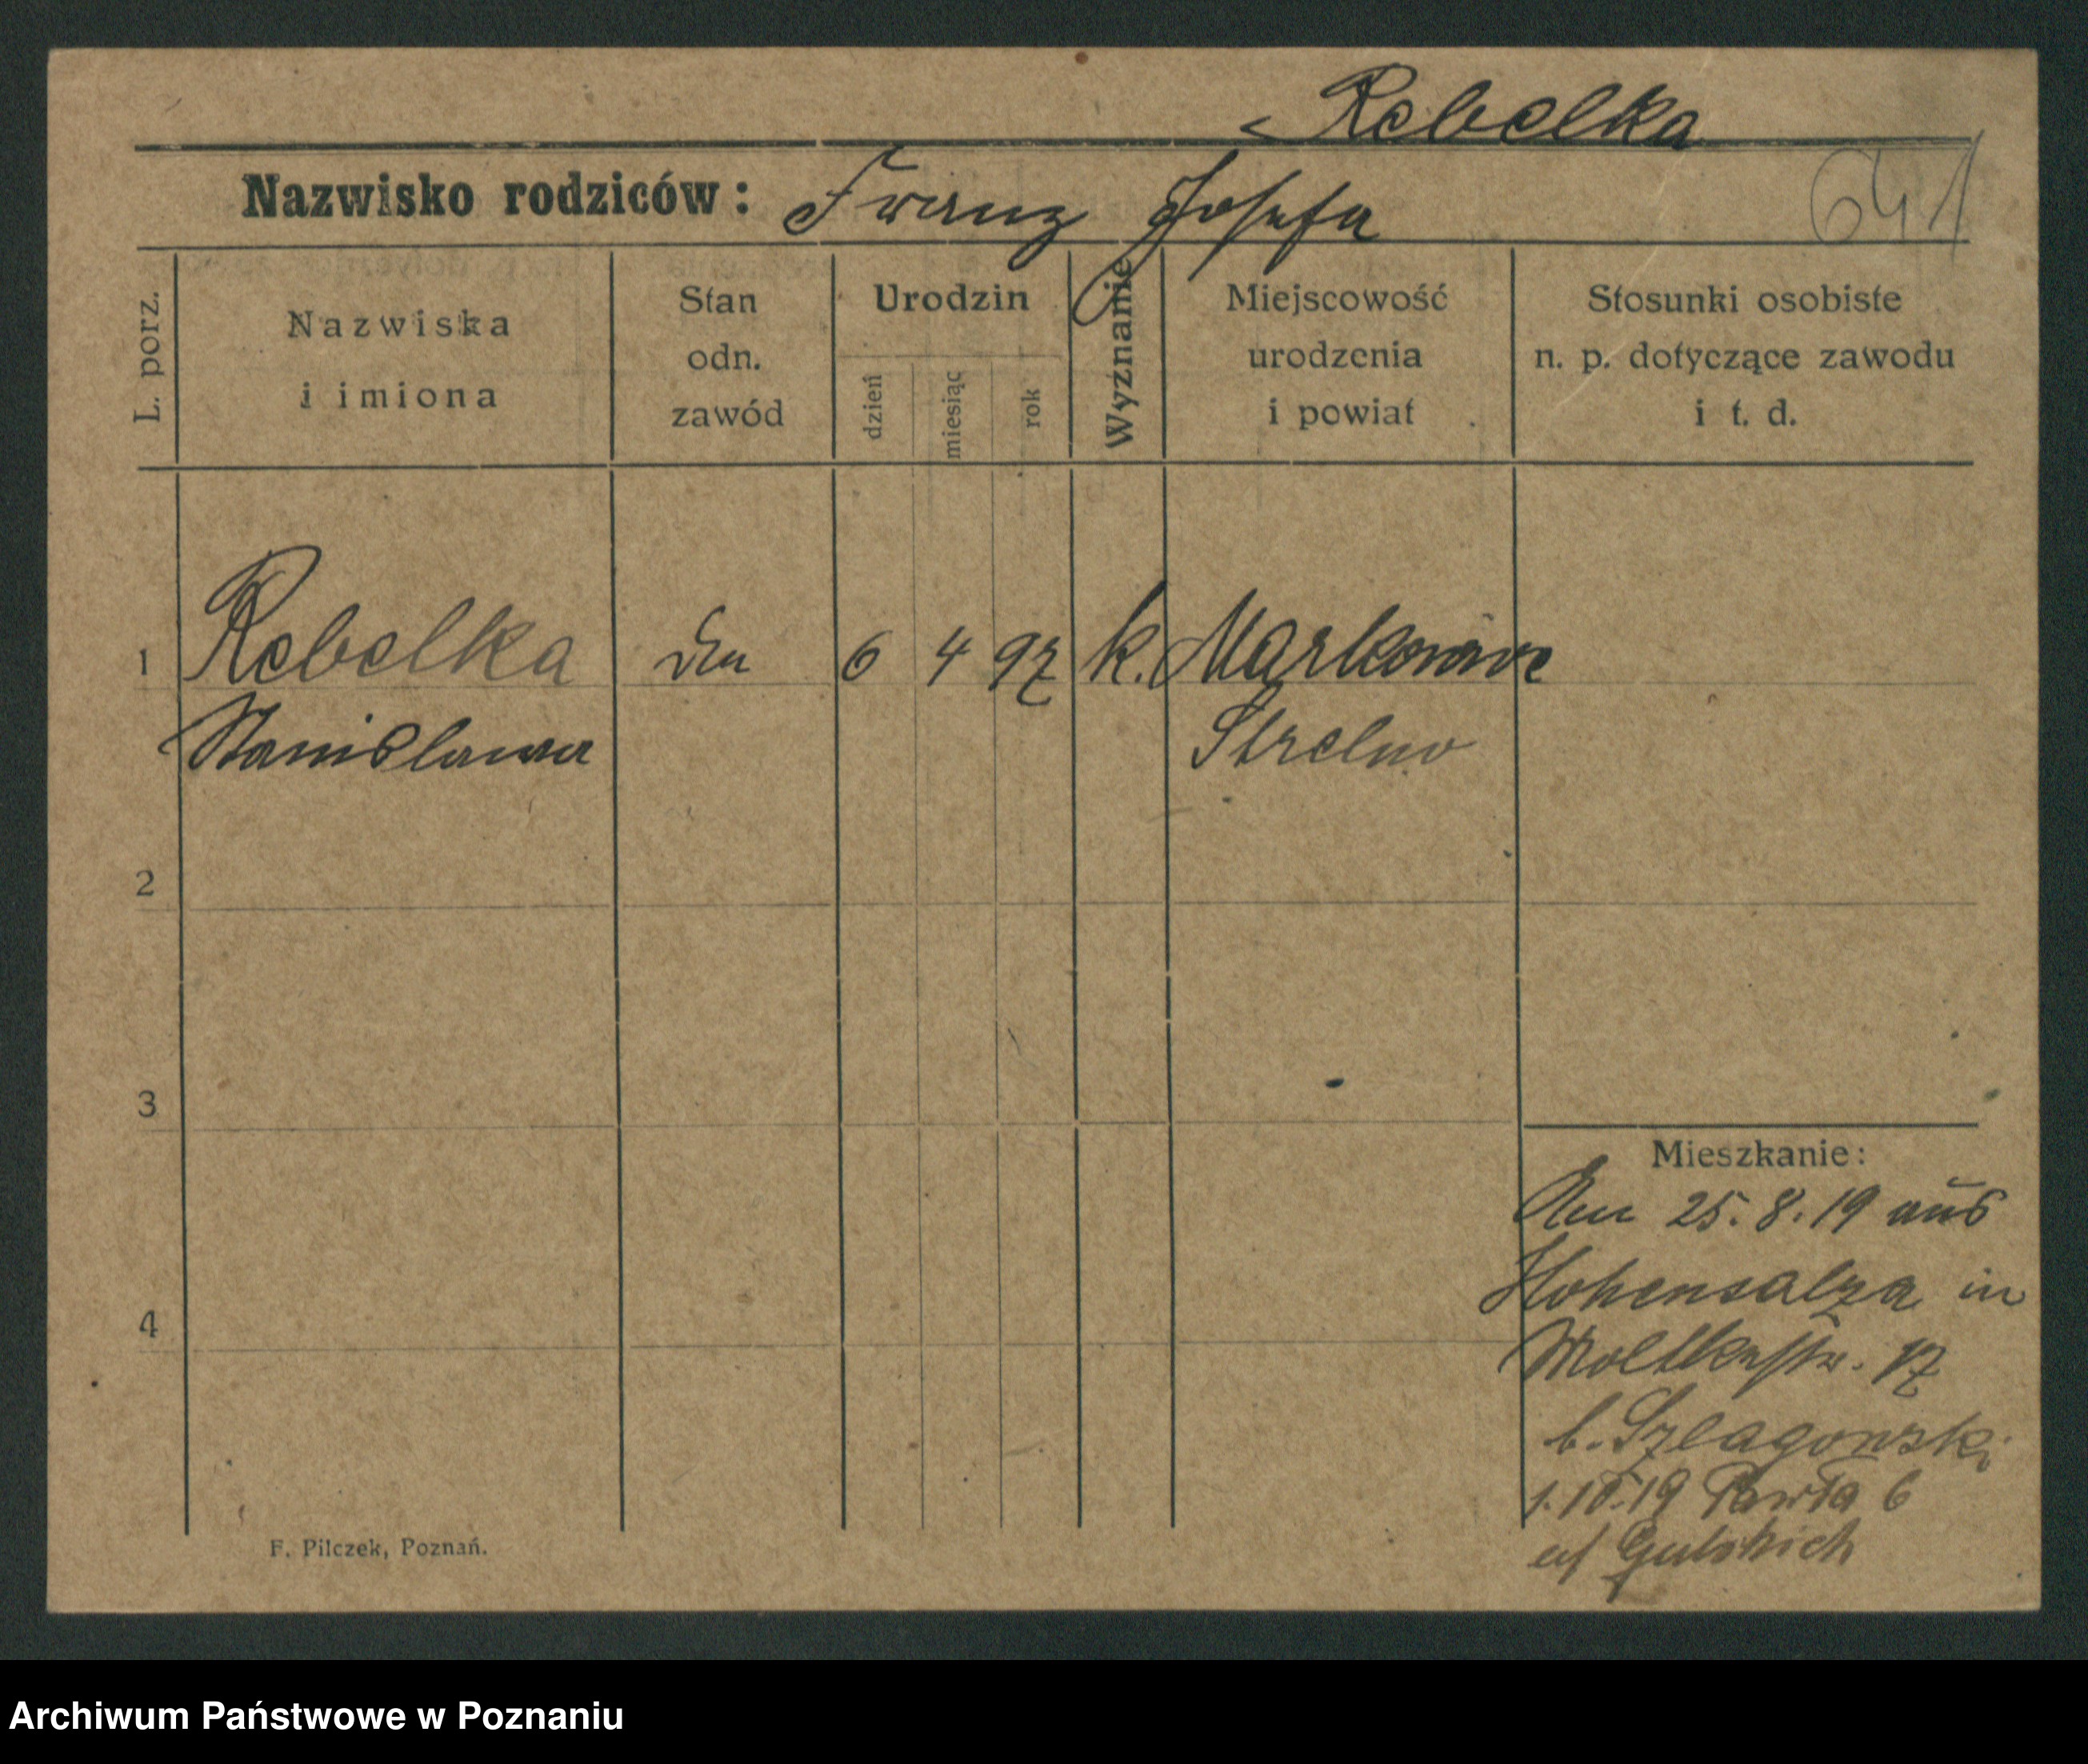 Rebelka
Nazwisko rodziców: Franz Josefa
641
L. porz.
Nazwiska
i imiona
Stan
odn.
zawód
Urodzin
dzień
miesiąc
rok
Wyznanie
Miejscowość
urodzenia
i powiat
Stosunki osobiste
n. p. dotyczące zawodu
i t. d.
1 Rebelka 6 4 97 k. Markowice
Stanislawa Strelno
2
3
4
Mieszkanie:
25. 8. 19 aus
Hohensalza in
Moltkestr. 17
b. Szlagowski
1. 10. 19 Pawła 6
Gulskich
F. Pilczek, Poznań.
Archiwum Państwowe w Poznaniu